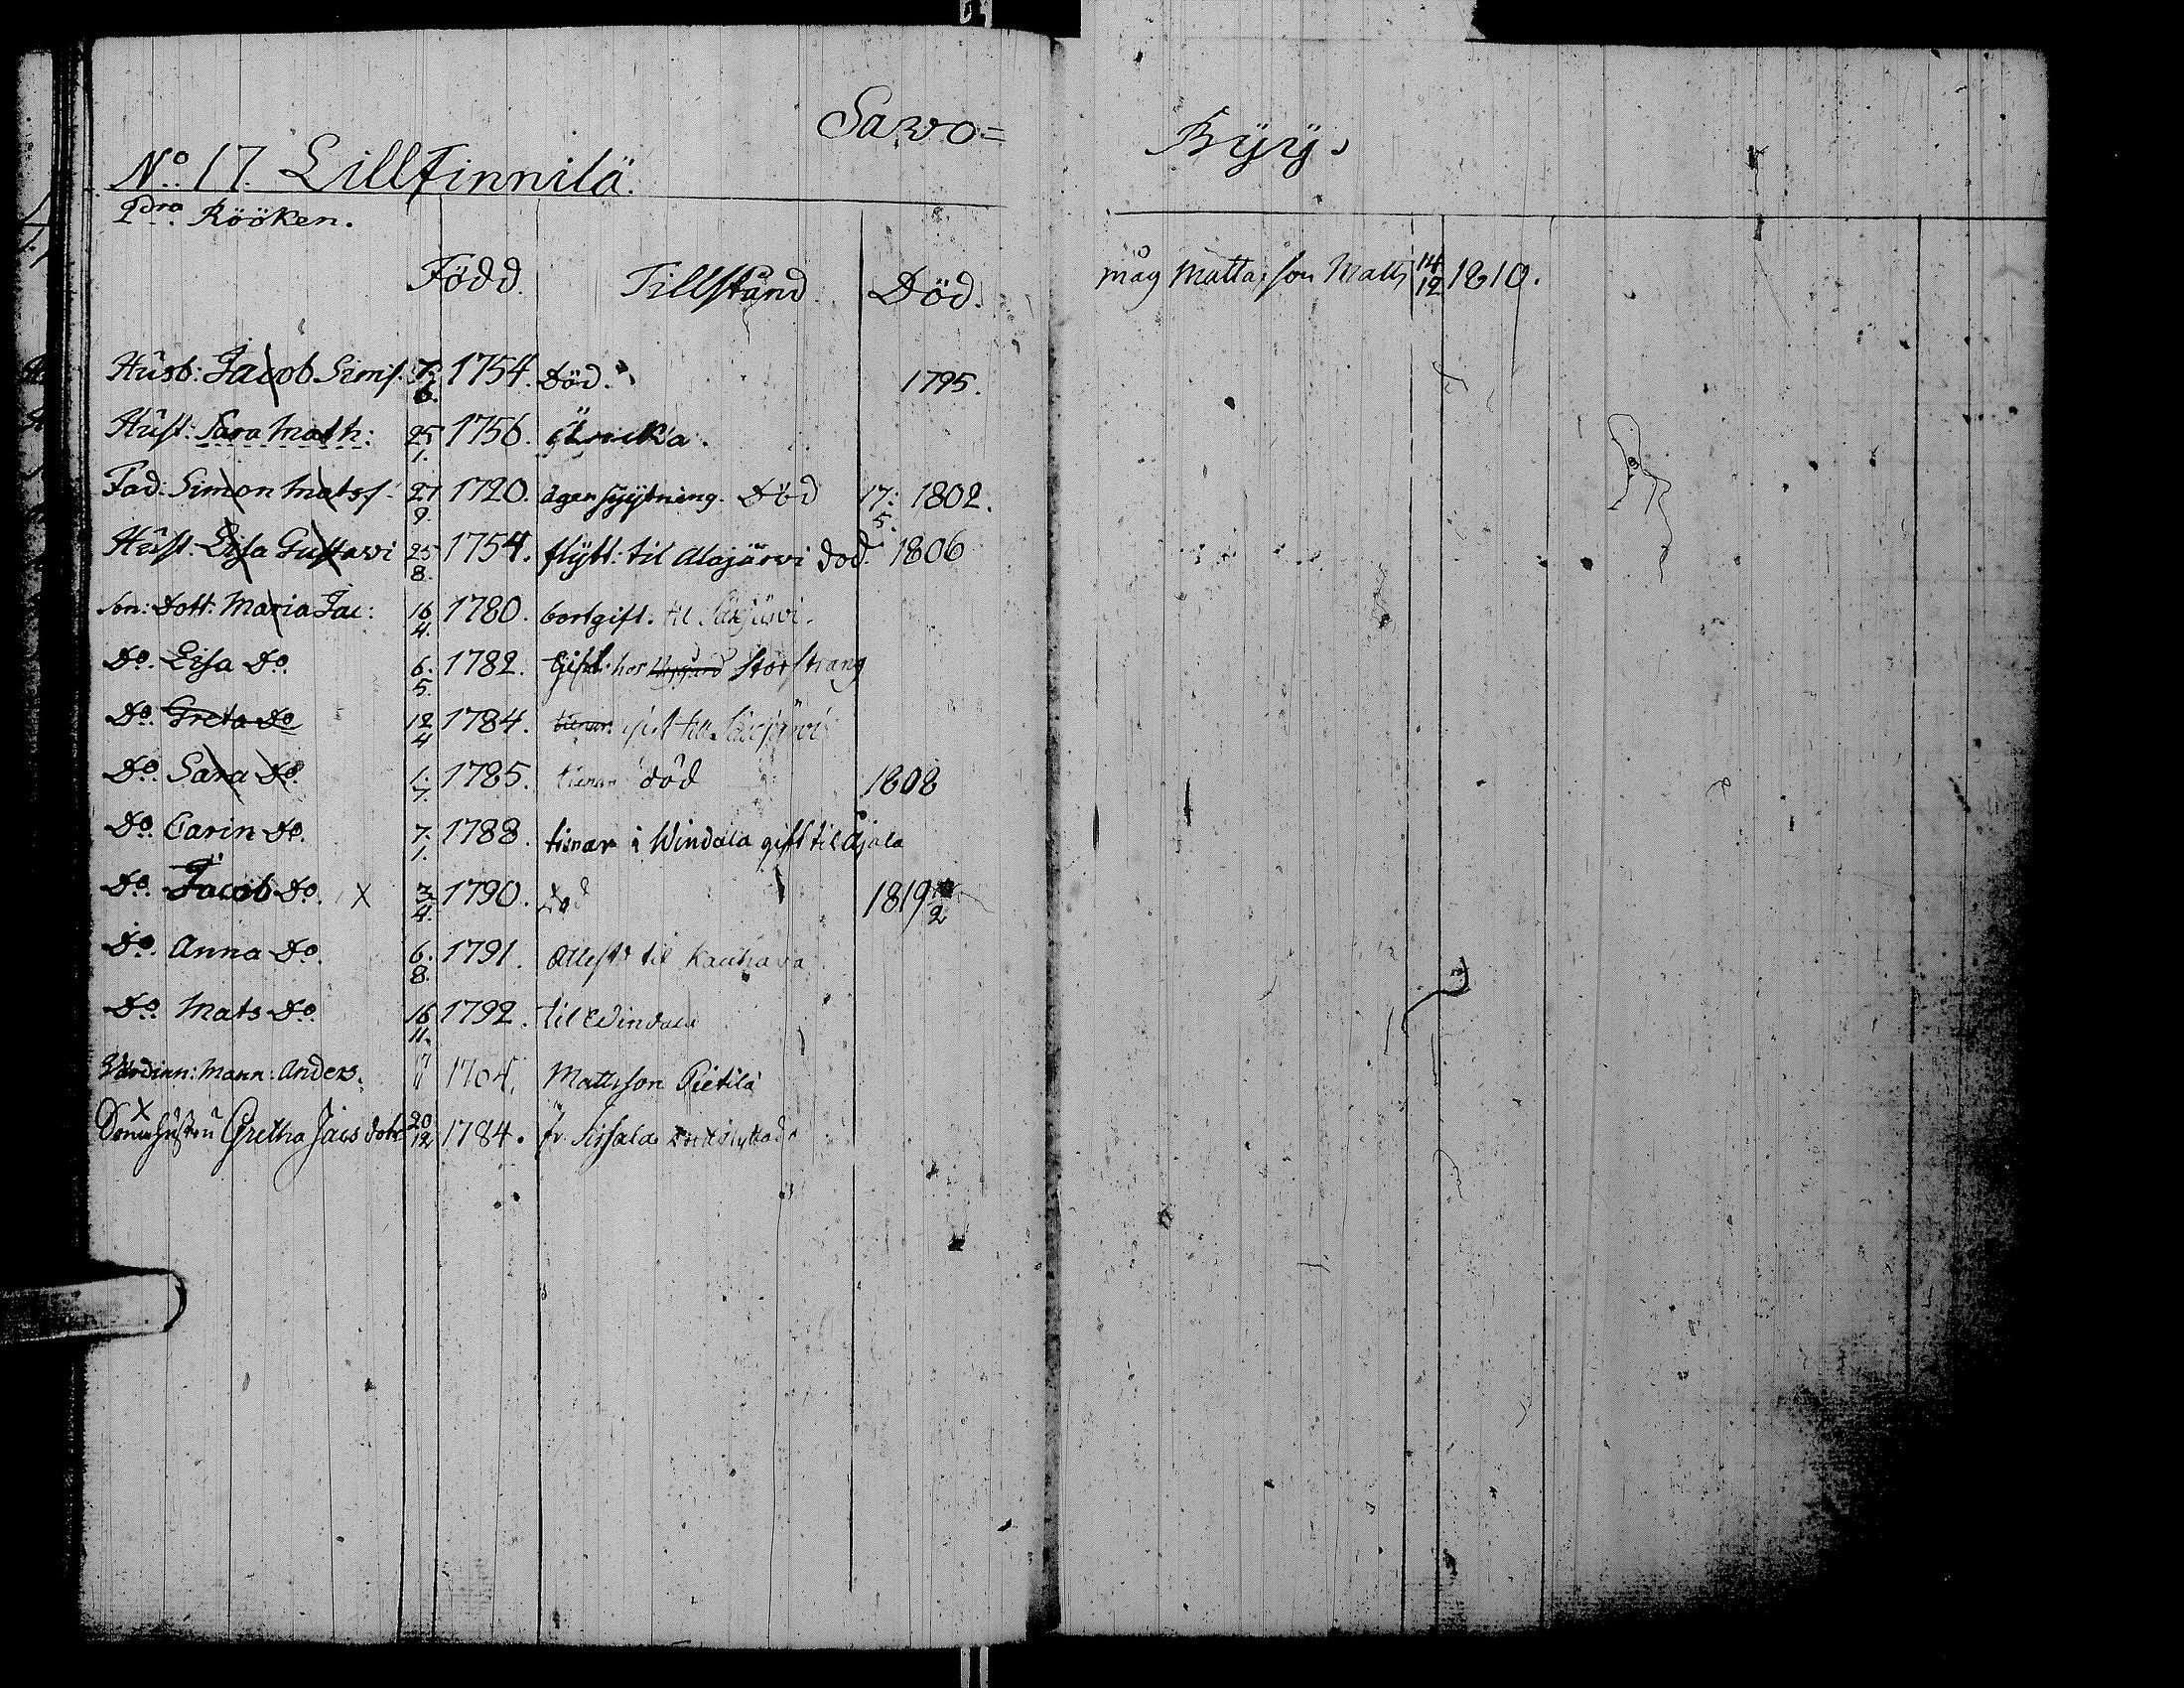 Sawo=
No. 17. Lillfinnilä.
2dra Rööken.
Född. Tillstånd. Död.
Husb: Jacob Sims. 7. 6. 1754. Död. 1795.
Hust: Sara Math: 25 1. 1756. Enka.
Fad: Simon Matss. 27 9. 1720. äger syytning. Död 17: 5. 1802.
Hust: Lisa Gustavi 25 8. 1754. flytt: til Alajärvi död. 1806
Son: Dott: Maria Jac: 16 4. 1780. bortgift. til
Do. Lisa Do. 6. 5. 1782. Gift. hos Storstrang
Do. Greta Do 12 4 1784. tienar. gift til
Do. Sara Do. 1. 7. 1785. tienar död 1808
Do. Carin Do. 7. 1. 1788. tienar i Windala gift til Äjälä
Do. Jacob Do. X 3 4. 1790. Död 1819 2
Do. Anna Do. 6. 8. 1791. Attest til Kauhava
Do. Mats Do. 16 11. 1792. til Windala
Värdinn: Mann: Anders. 17 Mattsson Pietilä
X Gretha Jacs dotr 20 12 1784. fr.
Byy.
måg Mattasson Matts 14 12 1810.